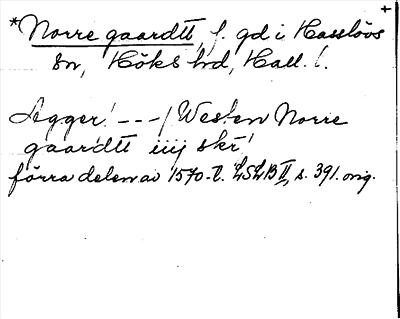 *Norre gaardtt, f. gd i Hasslövs
sn, Höks hd, Hall. l.
Ligger! --- / Westen Norre
gaardtt iiij skr!
förra delen av 1570-t. LSLB II, s. 391. orig.